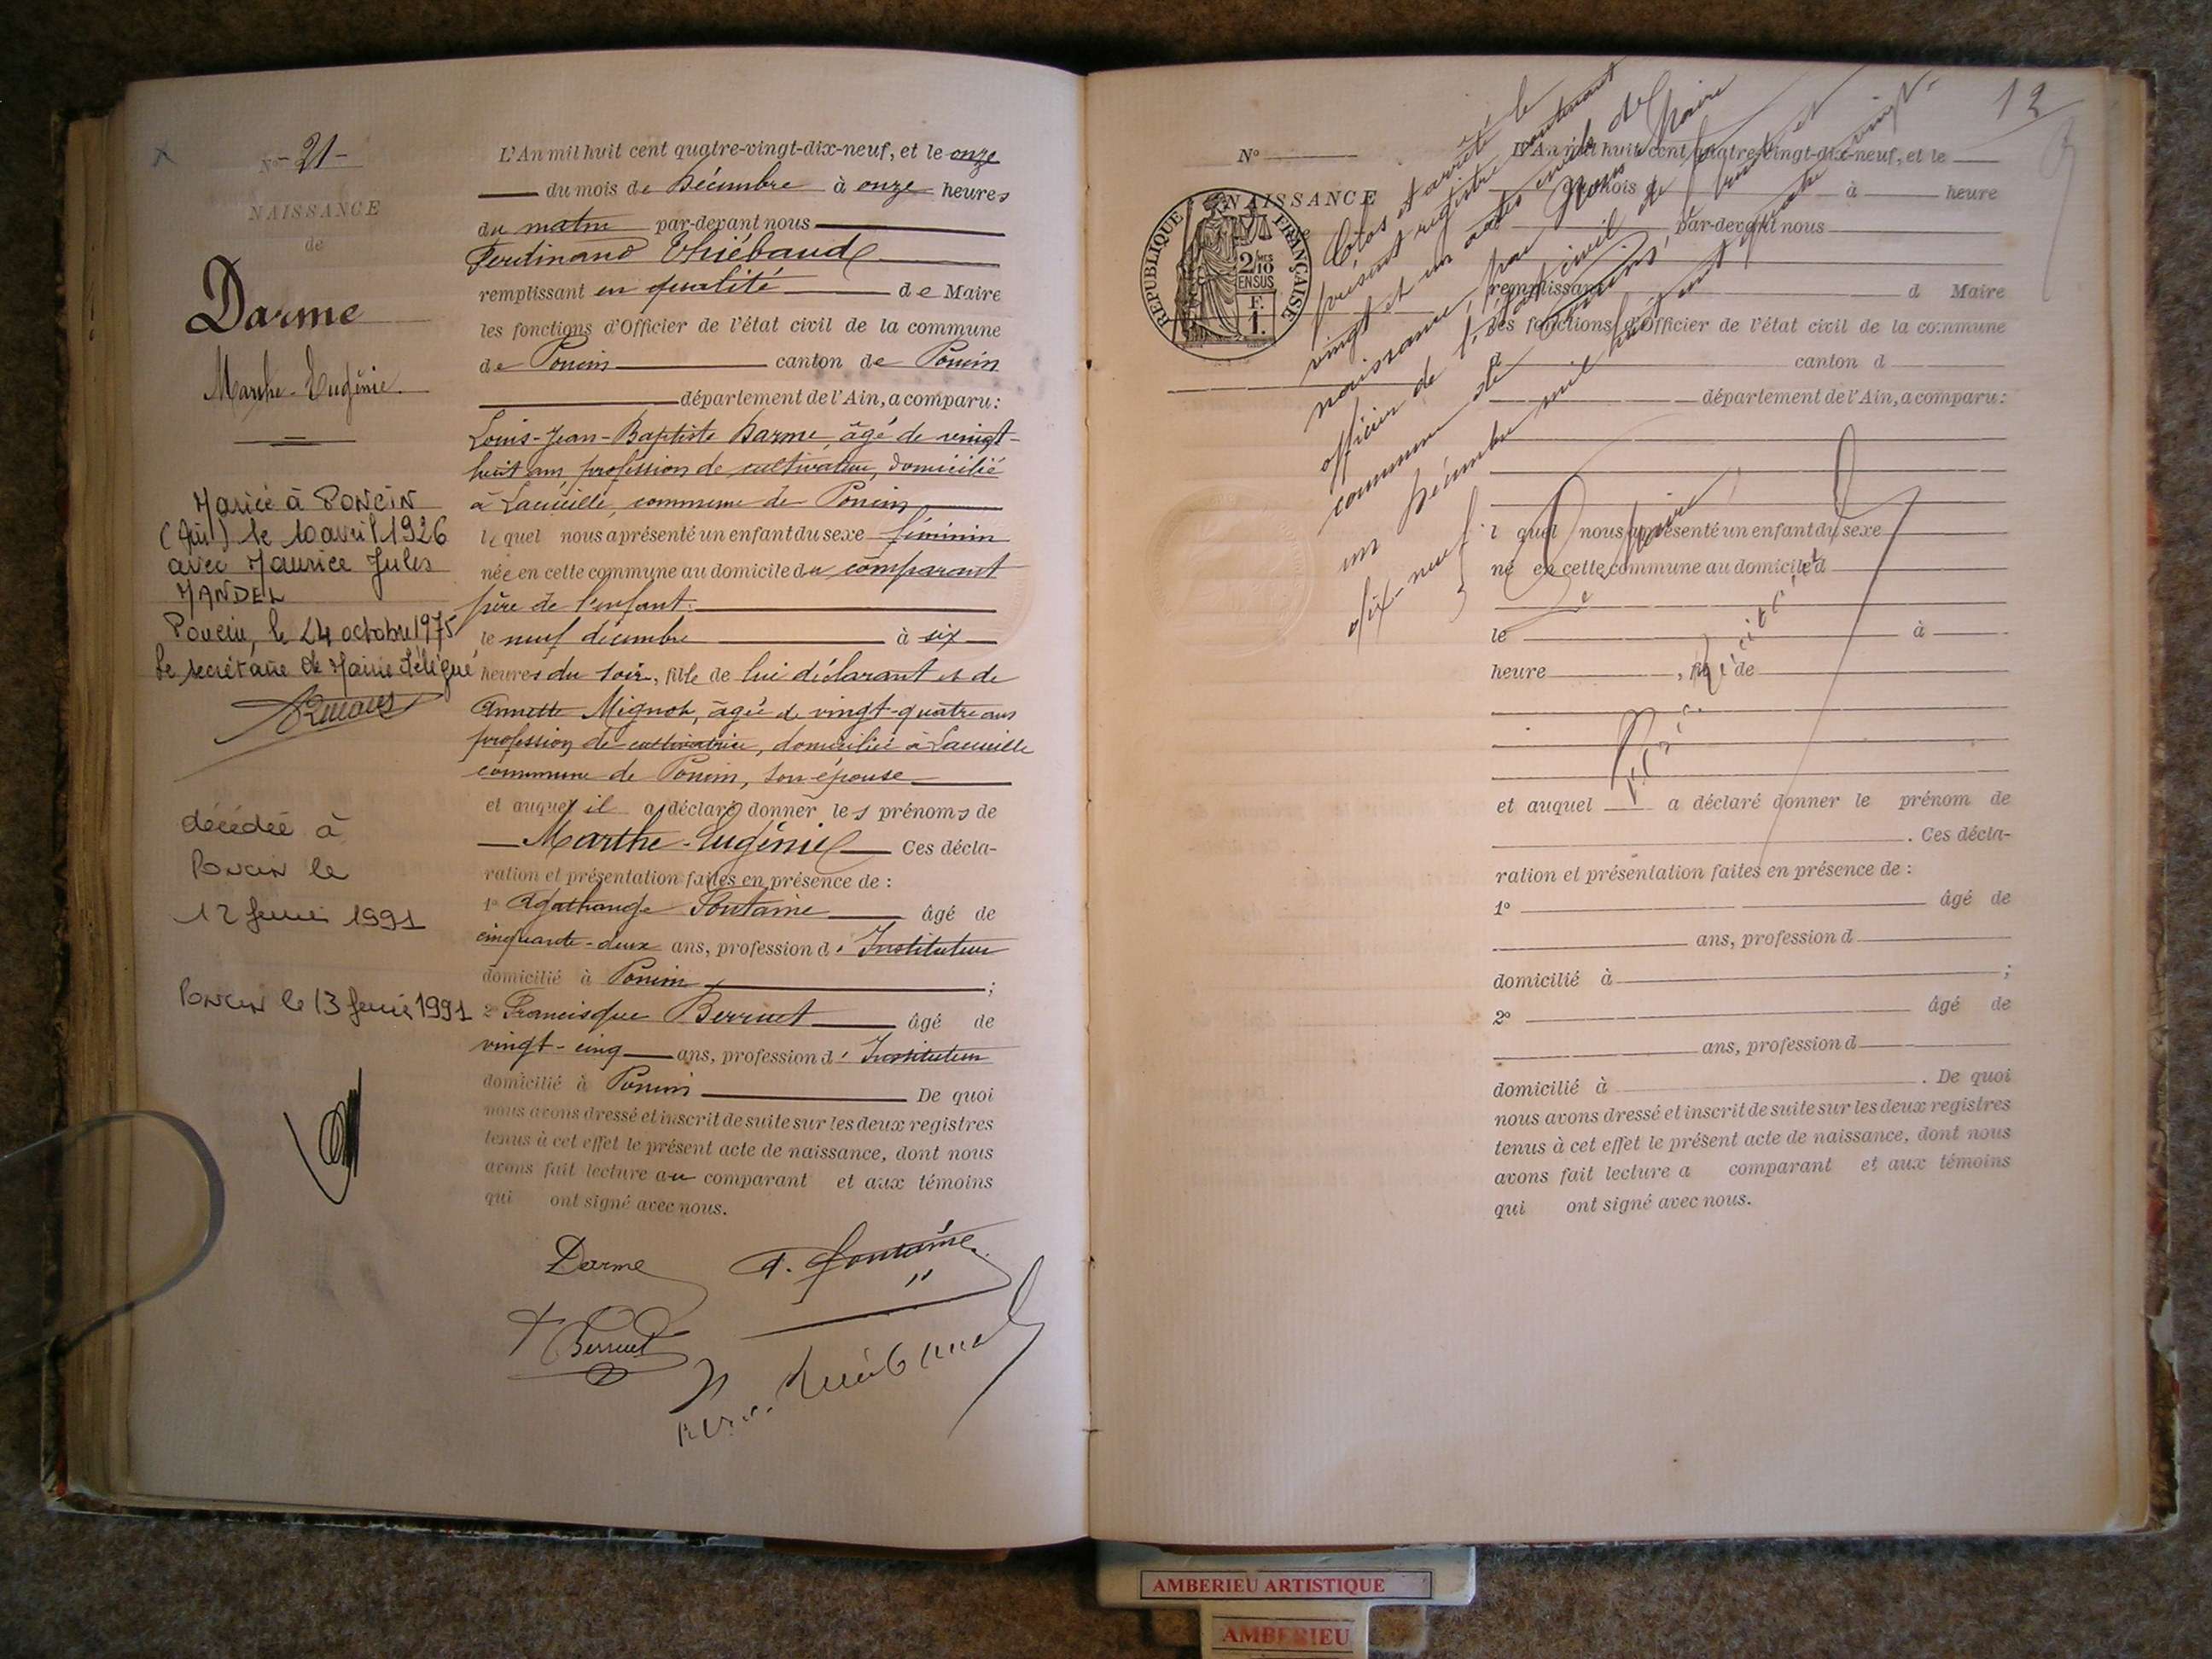 N° - 21 -
NAISSANCE
de
Darme
Marthe-Eugénie
Mariée à PONCIN
(Ain) le 10 avril 1926
avec Maurice Jules
MANDEL
Poncin, le 24 octobre 1975
Le secrétaire de Mairie délégué
décédée à
Poncin le
12 février 1991
Poncin le 13 février 1991
L'An mil huit cent quatre-vingt-dix-neuf, et le onze
du mois de Décembre à onze heures
du matin par-devant nous
Ferdinand Thiébaud
remplissant en qualité de Maire
les fonctions d'Officier de l'état civil de la commune
de Poncin canton de Poncin
département de l'Ain, a comparu :
Louis-Jean-Baptiste Darme, âgé de vingt-
huit ans, profession de cultivateur, domicilié
à Lacueille, commune de Poncin
lequel nous a présenté un enfant du sexe féminin
née en cette commune au domicile du comparant
père de l'enfant.
le neuf décembre à six
heures du soir, fille de lui déclarant et de
Annette Mignot, âgée de vingt-quatre ans
profession de cultivatrice, domiciliée à Lacueille
commune de Poncin, son épouse
et auquel il a déclaré donner les prénoms de
Marthe-Eugénie Ces décla-
ration et présentation faites en présence de :
1° Agathange Fontaine âgé de
cinquante-deux ans, profession d'Instituteur
domicilié à Poncin ;
2° Francisque Berruet âgé de
vingt-cinq ans, profession d'Instituteur
domicilié à Poncin De quoi
nous avons dressé et inscrit de suite sur les deux registres
tenus à cet effet le présent acte de naissance, dont nous
avons fait lecture au comparant et aux témoins
qui ont signé avec nous.
Darme A. Fontaine
Berruet
Thiébaud
12
N°
NAISSANCE
RÉPUBLIQUE FRANÇAISE
2/10 MES
EN SUS
F.
1.
Clos et arrêté le
présent registre contenant
vingt et un actes de
naissance, par Nous Maire
officier de l'état civil de la
commune de Poncin, le trente et
un Décembre mil huit cent quatre vingt-
dix-neuf.
Le Maire
L'An mil huit cent quatre-vingt-dix-neuf, et le
du mois d à heure
par-devant nous
remplissant d Maire
les fonctions d'Officier de l'état civil de la commune
d canton d
département de l'Ain, a comparu :
l quel nous a présenté un enfant du sexe
né en cette commune au domicile d
le à
heure , fil de
et auquel a déclaré donner le prénom de
. Ces décla-
ration et présentation faites en présence de :
1° âgé de
ans, profession d
domicilié à ;
2° âgé de
ans, profession d
domicilié à . De quoi
nous avons dressé et inscrit de suite sur les deux registres
tenus à cet effet le présent acte de naissance, dont nous
avons fait lecture a comparant et aux témoins
qui ont signé avec nous.
AMBERIEU ARTISTIQUE
AMBERIEU